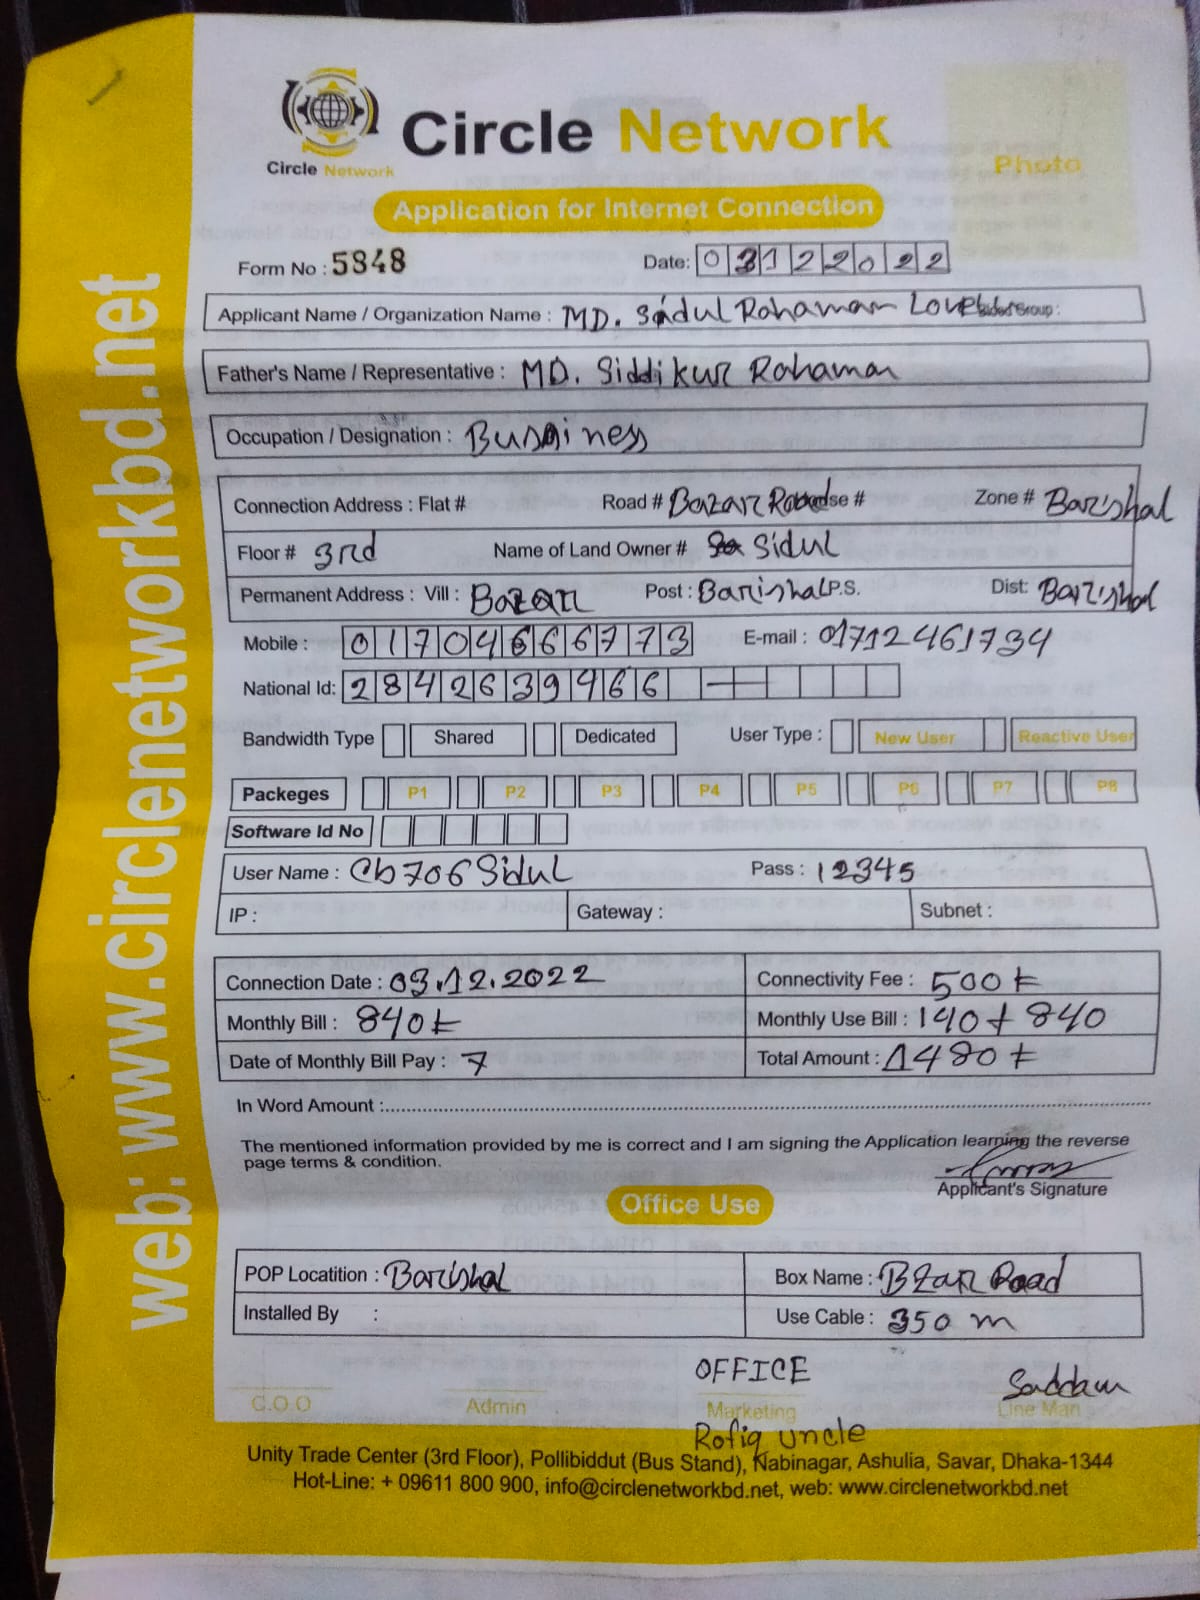 Circle Network
Circle Network
Photo
Application for Internet Connection
Form No : 5848
Date: 03122022
Applicant Name / Organization Name : MD. Sidul Rahaman Love Blood Group :
Father's Name / Representative : MD. Siddikur Rahaman
Occupation / Designation : Business
Connection Address : Flat # Road # Bazar Road House # Zone # Barishal
Floor # 3rd Name of Land Owner # Sidul
Permanent Address : Vill : Bazar Post : Barishal P.S. Dist: Barishal
Mobile : 01704666773 E-mail : 01712461734
National Id: 2842639466
Bandwidth Type Shared Dedicated User Type : New User Reactive User
Packeges P1 P2 P3 P4 P5 P6 P7 P8
Software Id No
User Name : Cb706Sidul Pass : 12345
IP : Gateway : Subnet :
Connection Date : 03.12.2022 Connectivity Fee : 500 t
Monthly Bill : 840 t Monthly Use Bill : 140 + 840
Date of Monthly Bill Pay : 7 Total Amount : 1480 t
In Word Amount :
The mentioned information provided by me is correct and I am signing the Application learning the reverse
page terms & condition.
Applicant's Signature
Office Use
POP Locatition : Barishal Box Name : Bzar Road
Installed By : Use Cable : 350 m
OFFICE Saddam
C.O.O Admin Marketing Line Man
Rofiq uncle
Unity Trade Center (3rd Floor), Pollibiddut (Bus Stand), Nabinagar, Ashulia, Savar, Dhaka-1344
Hot-Line: + 09611 800 900, info@circlenetworkbd.net, web: www.circlenetworkbd.net
web: www.circlenetworkbd.net